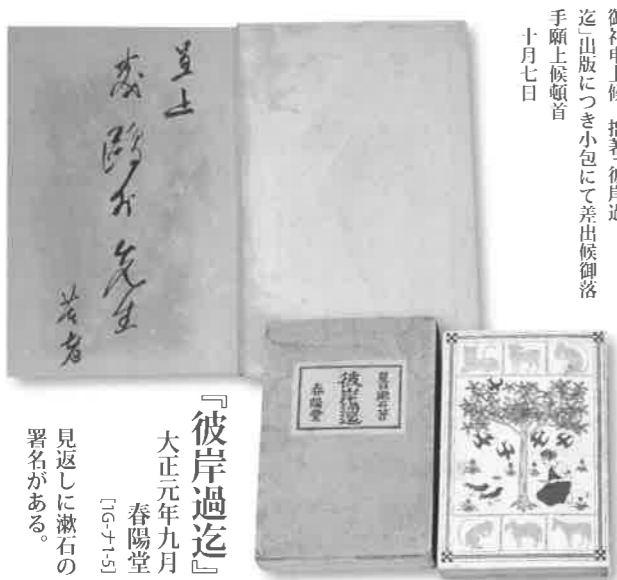 御礼申上候 拙著「彼岸過
迄」出版につき小包にて差出候御落
手願上候頓首
十月七日
呈上
森鷗外先生
著者
夏目漱石著
彼岸過迄
春陽堂
『彼岸過迄』
大正元年九月
春陽堂
[1G-ナ1-5]
見返しに漱石の
署名がある。